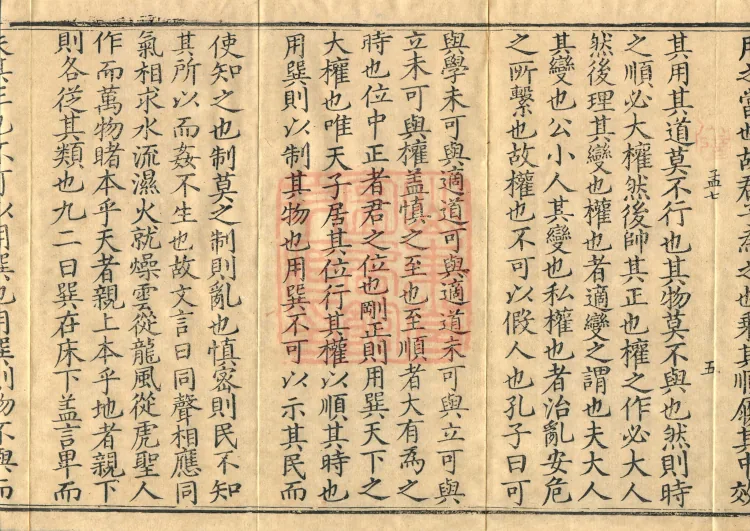 用之當也故君子為之也乘其順履其中效
其用其道莫不行也其物莫不與也然則時
之順必大權然後帥其正也權之作必大人
然後理其變也權也者適變之謂也夫大人
其變也公小人其變也私權也者治亂安危
之所繫也故權也不可以假人也孔子曰可
孟七
五
與學未可與適道可與適道未可與立可與
立未可與權盖慎之至也至順者大有為之
時也位中正者君之位也剛正則用巽天下之
大權也唯天子居其位行其權以順其時也
用巽則以制其物也用巽不可以示其民而
使知之也制莫之制則亂也慎密則民不知
其所以而姦不生也故文言曰同聲相應同
氣相求水流濕火就燥雲從龍風從虎聖人
作而萬物睹本乎天者親上本乎地者親下
則各從其類也九二曰巽在床下盖言畢而
不可以用巽也用巽則物不與而